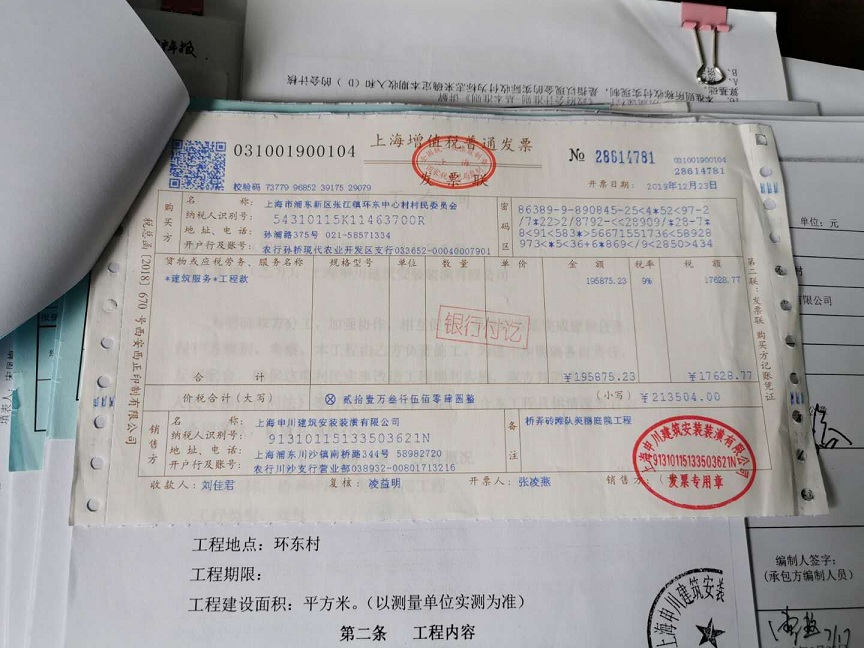 上海增值税普通发票
发票联
031001900104
№ 28614781
031001900104
28614781
校验码 73779 96852 39175 29079
开票日期: 2019年12月23日
税总函〔2018〕670号西安西正印制有限公司
购买方
名称: 上海市浦东新区张江镇环东中心村村民委员会
纳税人识别号: 54310115K11463700R
地址、电话: 孙浦路375号 021-58571334
开户行及账号: 农行孙桥现代农业开发区支行033652-00040007901
密码区
86389-9-890845-25<4*52<97-2
/7*22>2/8792-<<28909/*28-7*
8<91<583*>56671551736<58928
973<*5<36+6*869</9<2850>434
货物或应税劳务、服务名称 规格型号 单位 数量 单价 金额 税率 税额
*建筑服务*工程款 195875.23 9% 17628.77
银行付讫
合计 ¥195875.23 ¥17628.77
价税合计(大写) ⊗ 贰拾壹万叁仟伍佰零肆圆整 (小写) ¥213504.00
销售方
名称: 上海申川建筑安装装潢有限公司
纳税人识别号: 91310115133503621N
地址、电话: 上海浦东川沙镇南桥路344号 58982720
开户行及账号: 农行川沙支行营业部038932-00801713216
备注
桥弄砖滩队美丽庭院工程
收款人: 刘佳君 复核: 凌益明 开票人: 张凌燕 销售方:(
上海申川建筑安装装潢有限公司
91310115133503621N
发票专用章
第二联:发票联 购买方记账凭证
单位: 元
有限公司
工程地点: 环东村
工程期限:
工程建设面积: 平方米。(以测量单位实测为准)
第二条 工程内容
编制人签字:
(承包方编制人员)
上海申川建筑安装